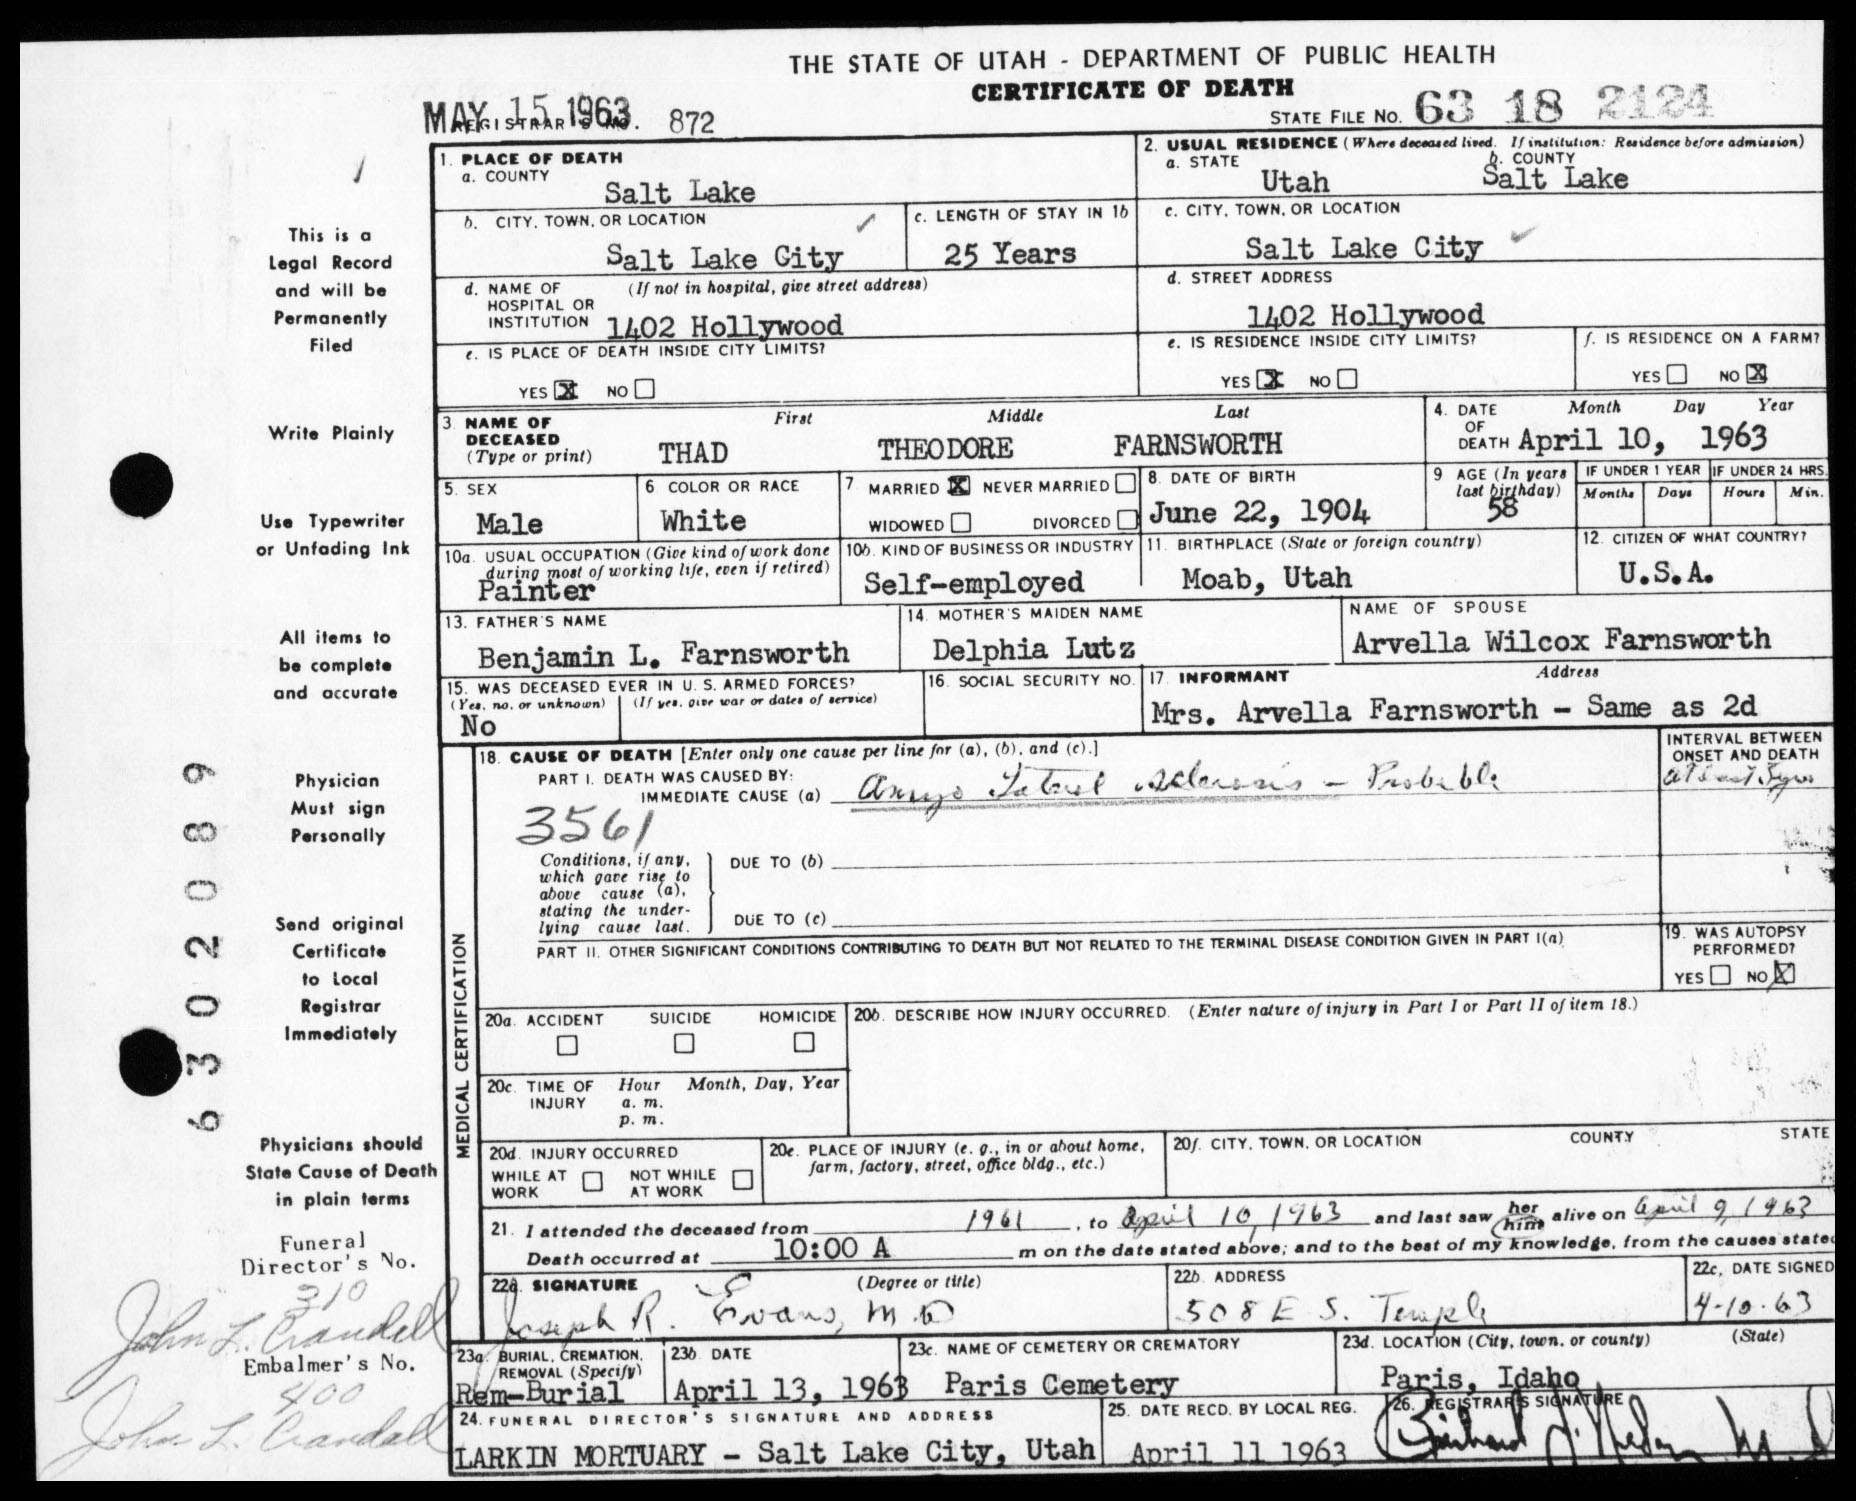 THE STATE OF UTAH - DEPARTMENT OF PUBLIC HEALTH
CERTIFICATE OF DEATH
MAY 15 1963
REGISTRAR'S NO. 872
STATE FILE NO. 63 18 2124
This is a
Legal Record
and will be
Permanently
Filed
Write Plainly
Use Typewriter
or Unfading Ink
All items to
be complete
and accurate
Physician
Must sign
Personally
Send original
Certificate
to Local
Registrar
Immediately
Physicians should
State Cause of Death
in plain terms
Funeral
Director's No.
310
John L. Crandall
Embalmer's No.
400
John L. Crandall
6302089
1. PLACE OF DEATH
a. COUNTY
Salt Lake
b. CITY, TOWN, OR LOCATION
Salt Lake City
c. LENGTH OF STAY IN 1b
25 Years
d. NAME OF HOSPITAL OR INSTITUTION
(If not in hospital, give street address)
1402 Hollywood
e. IS PLACE OF DEATH INSIDE CITY LIMITS?
YES X NO
2. USUAL RESIDENCE (Where deceased lived. If institution: Residence before admission)
a. STATE
Utah
b. COUNTY
Salt Lake
c. CITY, TOWN, OR LOCATION
Salt Lake City
d. STREET ADDRESS
1402 Hollywood
e. IS RESIDENCE INSIDE CITY LIMITS?
YES X NO
f. IS RESIDENCE ON A FARM?
YES NO X
3. NAME OF DECEASED (Type or print)
First Middle Last
THAD THEODORE FARNSWORTH
4. DATE OF DEATH
Month Day Year
April 10, 1963
5. SEX
Male
6. COLOR OR RACE
White
7. MARRIED X NEVER MARRIED
WIDOWED DIVORCED
8. DATE OF BIRTH
June 22, 1904
9. AGE (In years last birthday)
58
IF UNDER 1 YEAR
Months Days
IF UNDER 24 HRS.
Hours Min.
10a. USUAL OCCUPATION (Give kind of work done during most of working life, even if retired)
Painter
10b. KIND OF BUSINESS OR INDUSTRY
Self-employed
11. BIRTHPLACE (State or foreign country)
Moab, Utah
12. CITIZEN OF WHAT COUNTRY?
U.S.A.
13. FATHER'S NAME
Benjamin L. Farnsworth
14. MOTHER'S MAIDEN NAME
Delphia Lutz
NAME OF SPOUSE
Arvella Wilcox Farnsworth
15. WAS DECEASED EVER IN U. S. ARMED FORCES?
(Yes, no, or unknown) (If yes, give war or dates of service)
No
16. SOCIAL SECURITY NO.
17. INFORMANT Address
Mrs. Arvella Farnsworth - Same as 2d
MEDICAL CERTIFICATION
18. CAUSE OF DEATH [Enter only one cause per line for (a), (b), and (c).]
PART I. DEATH WAS CAUSED BY:
IMMEDIATE CAUSE (a) Amyo Lateral sclerosis - Probable
INTERVAL BETWEEN ONSET AND DEATH
at least yrs
3561
Conditions, if any, which gave rise to above cause (a), stating the underlying cause last.
DUE TO (b)
DUE TO (c)
PART II. OTHER SIGNIFICANT CONDITIONS CONTRIBUTING TO DEATH BUT NOT RELATED TO THE TERMINAL DISEASE CONDITION GIVEN IN PART I(a)
19. WAS AUTOPSY PERFORMED?
YES NO X
20a. ACCIDENT SUICIDE HOMICIDE
20b. DESCRIBE HOW INJURY OCCURRED. (Enter nature of injury in Part I or Part II of item 18.)
20c. TIME OF INJURY
Hour Month, Day, Year
a. m.
p. m.
20d. INJURY OCCURRED
WHILE AT WORK NOT WHILE AT WORK
20e. PLACE OF INJURY (e. g., in or about home, farm, factory, street, office bldg., etc.)
20f. CITY, TOWN, OR LOCATION COUNTY STATE
21. I attended the deceased from 1961, to April 10, 1963 and last saw her him alive on April 9, 1963
Death occurred at 10:00 A m on the date stated above; and to the best of my knowledge, from the causes stated
22a. SIGNATURE (Degree or title)
Joseph R. Evans, M.D
22b. ADDRESS
508 E S. Temple
22c. DATE SIGNED
4-10-63
23a. BURIAL, CREMATION, REMOVAL (Specify)
Rem-Burial
23b. DATE
April 13, 1963
23c. NAME OF CEMETERY OR CREMATORY
Paris Cemetery
23d. LOCATION (City, town, or county) (State)
Paris, Idaho
24. FUNERAL DIRECTOR'S SIGNATURE AND ADDRESS
LARKIN MORTUARY - Salt Lake City, Utah
25. DATE RECD. BY LOCAL REG.
April 11 1963
26. REGISTRAR'S SIGNATURE